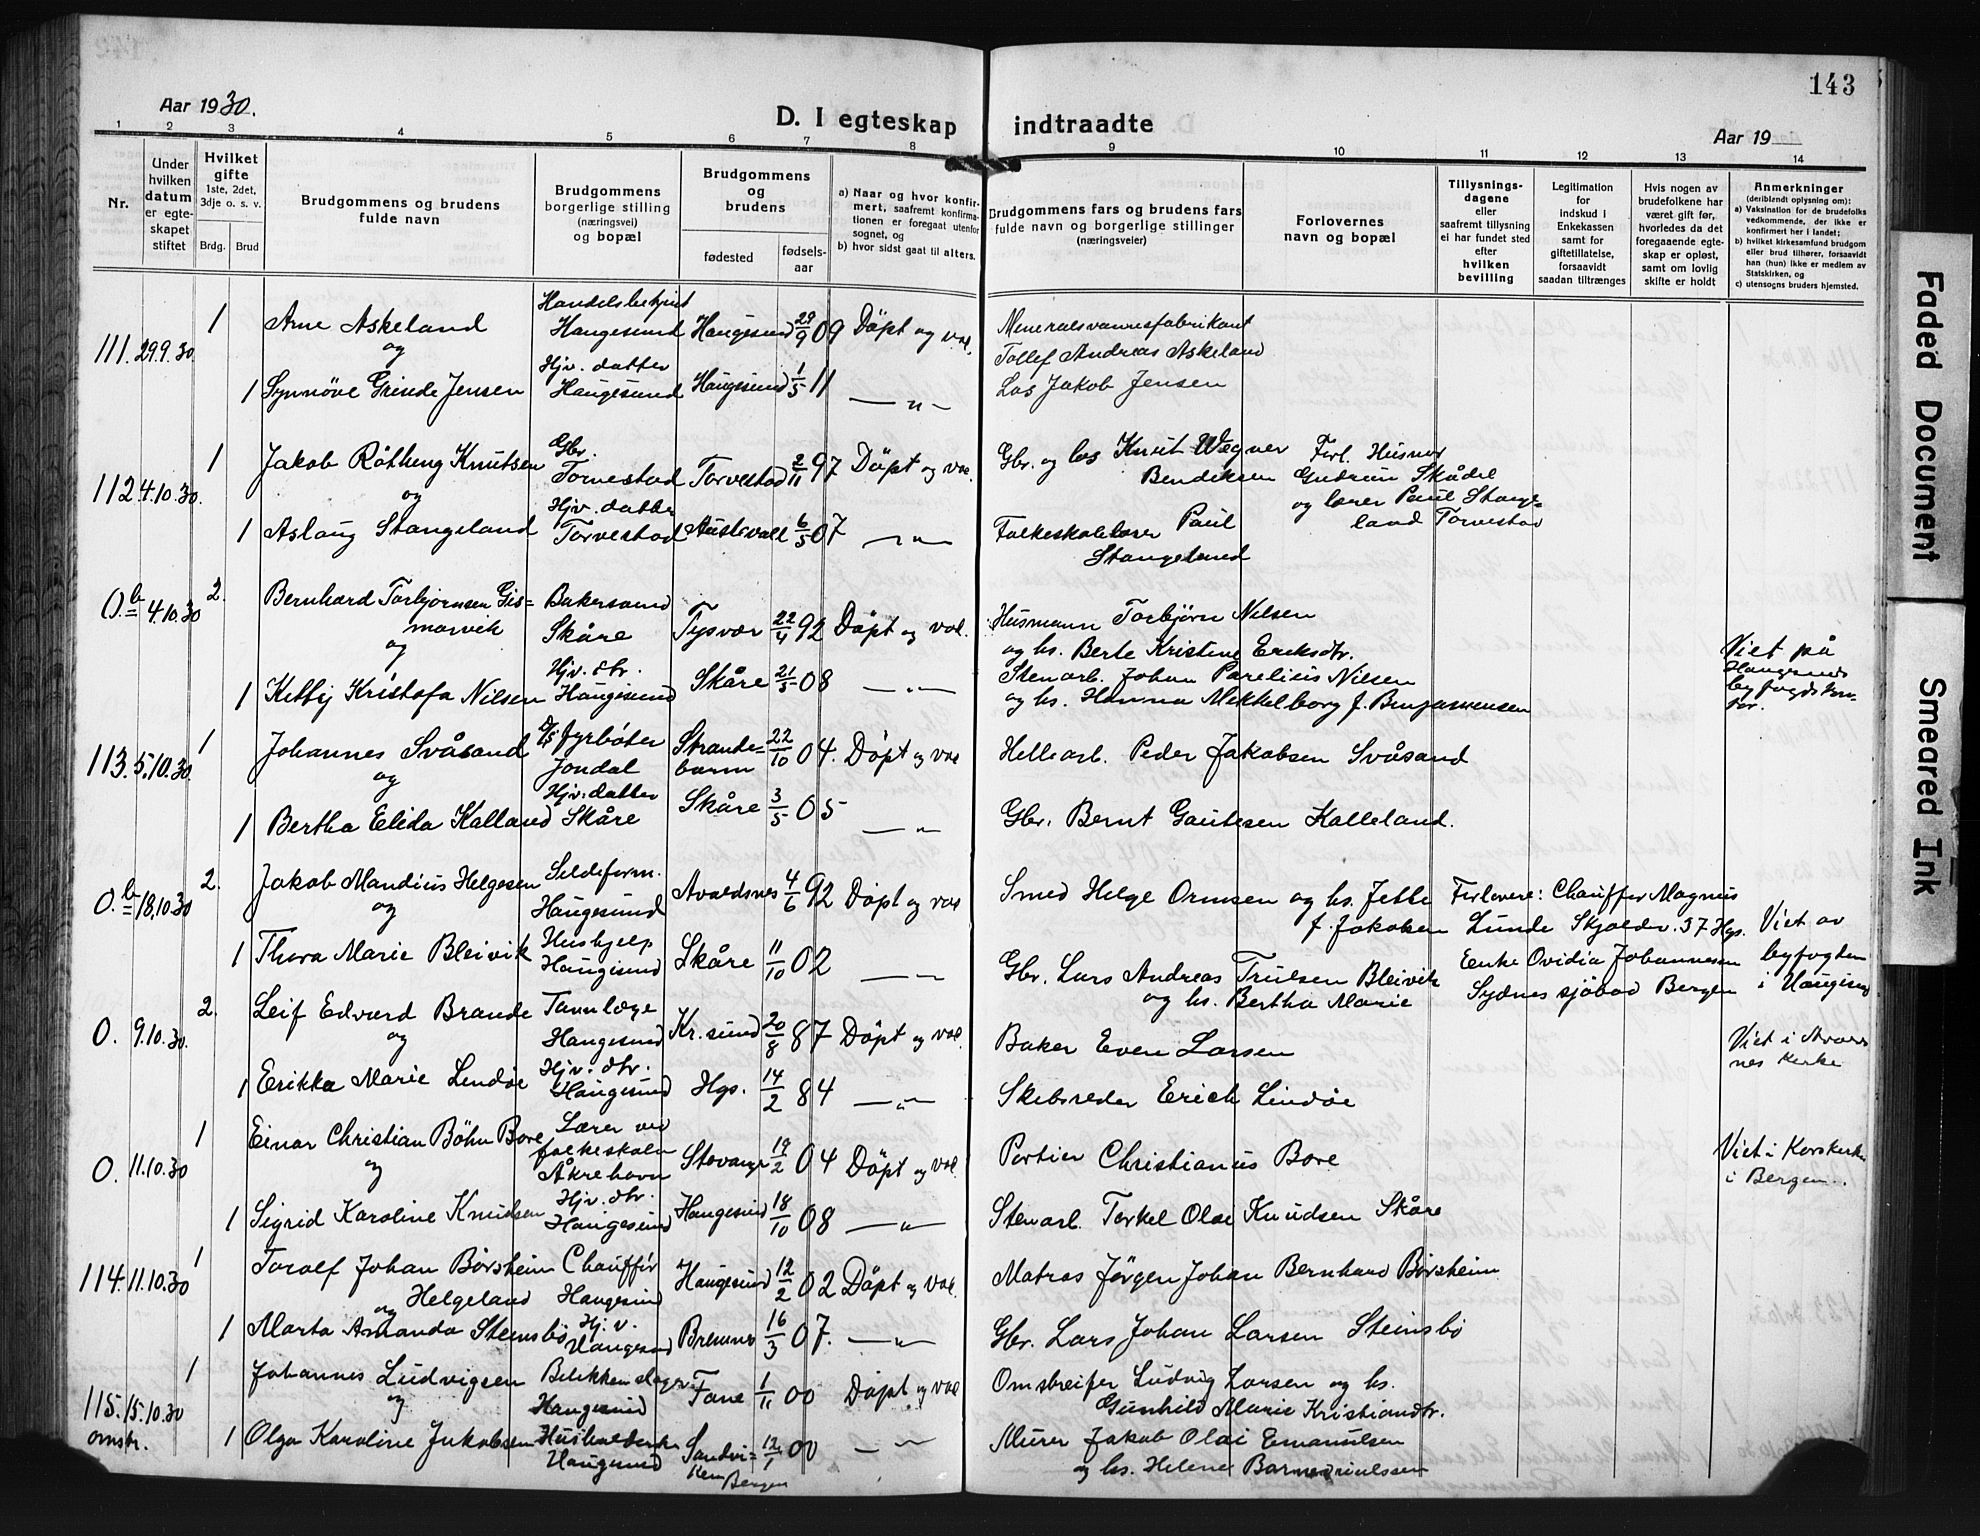 143
Aar 1930.
D. I egteskap indtraadte
Aar 19
1 2 3 4 5 6 7 8 9 10 11 12 13 14
Nr.
Under hvilken datum er egteskapet stiftet
Hvilket gifte 1ste, 2det, 3dje o. s. v.
Brdg. Brud
Brudgommens og brudens fulde navn
Brudgommens borgerlige stilling (næringsvei) og bopæl
Brudgommens og brudens
fødested fødsels-aar
a) Naar og hvor konfirmert, saafremt konfirmationen er foregaat utenfor sognet, og
b) hvor sidst gaat til alters.
Brudgommens fars og brudens fars fulde navn og borgerlige stillinger (næringsveier)
Forlovernes navn og bopæl
Tillysningsdagene eller saafremt tillysning ei har fundet sted efter hvilken bevilling
Legitimation for indskud i Enkekassen samt for giftetillatelse, forsaavidt saadan tiltrænges
Hvis nogen av brudefolkene har været gift før, hvorledes da det foregaaende egteskap er opløst, samt om lovlig skifte er holdt
Anmerkninger (deriblandt oplysning om):
a) Vaksination for de brudefolks vedkommende, der ikke er konfirmert her i landet;
b) hvilket kirkesamfund brudgom eller brud tilhører, forsaavidt han (hun) ikke er medlem av Statskirken, og
c) utensogns bruders hjemsted.
111. 29.9.30. 1 Arne Askeland Handelsbetjent Haugesund Haugesund 29/9 09 Döpt og vac. Mineralvannsfabrikant Tollef Andreas Askeland
og
1 Synnöve Grinde Jensen Hjv. datter Haugesund Haugesund 1/5 11 — „ — Los Jakob Jensen
112. 4.10.30. 1 Jakob Röthing Knutsen Gbr. Torvestad Torvestad 2/11 97 Döpt og vac. Gbr. og los Knut Wegner Bendiksen Forl. Husmor Gudrun Skådel og lærer Paul Stangeland Torvestad
og
1 Aslaug Stangeland Hjv. datter Torvestad Austevoll 6/5 07 — „ — Folkeskolelærer Paul Stangeland
0.b 4.10.30 2. Bernhard Torbjørnsen Gismarvik Bakersvend Skåre Tysvær 22/4 92 Döpt og vac. Husmann Torbjörn Nilsen og hs. Berte Kristine Eriksdtr. Viet på Haugesunds byfogdkontor.
og
1 Kitty Kristofa Nilsen Hjv. dtr. Haugesund Skåre 21/5 08 — „ — Stenarb. Johan Parelius Nilsen og hs. Hanna Mikkelborg f. Benjaminsen
113. 5.10.30. 1 Johannes Svåsand D/S fyrböter Jondal Strandebarm 22/10 04. Döpt og vac Hellearb. Peder Jakobsen Svåsand
og
1 Bertha Elida Kalland Hjv. datter Skåre Skåre 3/5 05 — „ — Gbr. Bernt Gautesen Kalleland.
0.b 18.10.30 2. Jakob Mandius Helgesen Sildeform. Haugesund Avaldsnes 4/6 92 Döpt og vac Smed Helge Ormsen og hs. Jette f. Jakobsen Forlovere: Chauffør Magnus Lunde Skjoldv. 37 Hgs. Viet av byfogden i Haugesund
og
1 Thora Marie Bleivik Hushjelp Haugesund Skåre 11/10 02 — „ — Gbr. Lars Andreas Trulsen Bleivik og hs. Bertha Marie Enke Ovidia Johannesen Sydnes sjöbad Bergen
0. 9.10.30. 2. Leif Edvard Brande Tannlæge Haugesund Kr.sund 20/8 87 Döpt og vac. Baker Even Larsen Viet i Avaldsnes kirke
og
1 Erikka Marie Lindöe Hjv. dtr. Haugesund Hgs. 14/2 84 — „ — Skibsreder Erich Lindöe
0. 11.10.30 1 Einar Christian Böhn Bore Lærer ved folkeskolen Åkrehavn Stavanger 19/2 04 Döpt og vac. Portier Christianus Bore Viet i Korskirken i Bergen.
og
1 Sigrid Karoline Knudsen Hjv. dtr. Haugesund Haugesund 18/10 08 — „ — Stenarb. Torkel Olai Knudsen Skåre
114. 11.10.30 1 Toralf Johan Börsheim Helgeland Chaufför Haugesund Haugesund 12/2 02 Döpt og vac. Matros Jörgen Johan Bernhard Börsheim
og
1 Marta Amanda Steinsbö Hj. v. Haugesund Bremnes 16/3 07. — „ — Gbr. Lars Johan Larsen Steinsbö
115. 15.10.30 omstr. 1 Johannes Ludvigsen Blikkenslager Haugesund Fane 1/11 00 Döpt og vac Omstreifer Ludvig Larsen og hs. Gunhild Marie Kristiandtr.
og
1 Olga Karoline Jakobsen Husholderske Haugesund Sandviken Bergen 12/1 00 — „ — Murer Jakob Olai Emanulsen og hs. Helene
Faded Document
Smeared Ink